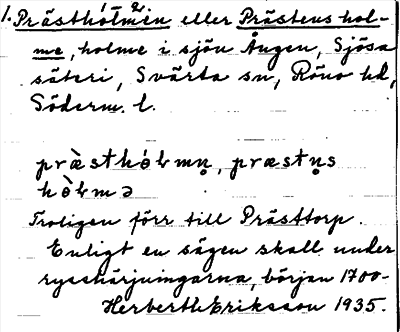 1. Prästholmen eller Prästens hol-
me, holme i sjön Ången, Sjösa
säteri, Svärta sn, Rönö hd,
Söderm. l.
præ̀sthólmṇ, præstṇs
hòlmə
Troligen förr till Prästtorp.
Enligt en sägen skall under
rysshärjningarna, början 1700-
Herberth Eriksson 1935.